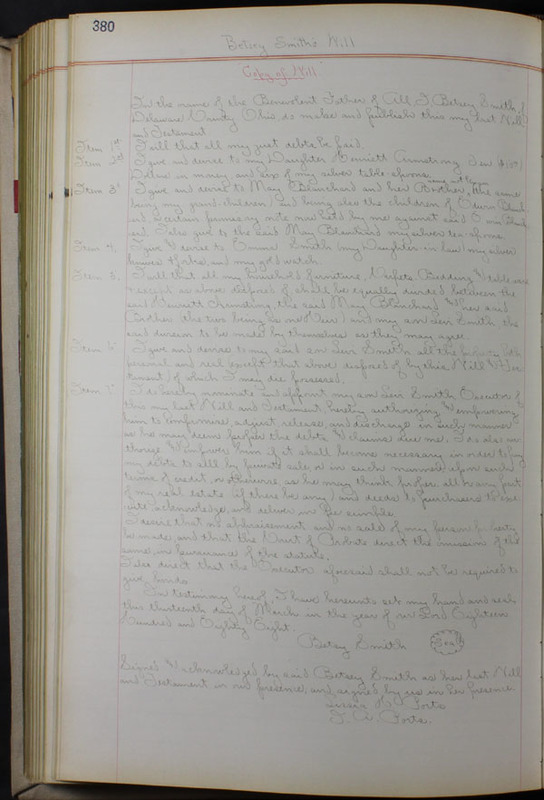 380
Betsey Smith's Will
Copy of Will
In the name of the Benevolent Father of All, I Betsey Smith, of
Delaware County Ohio do make and publish this my last Will
and Testament
Item 1st I will that all my just debts be paid.
Item 2d I give and devise to my Daughter Armstrong Ten
Dollars in money, and six of my silver table spoons.
Item 3d I give and devise to May Blanchard and her Brother, the same
being my grand children, and being also the children of
a certain promissory note now held by me against said
I also give to the said May Blanchard my silver tea spoons.
Item 4. I give & devise to Emma Smith my Daughter in law my silver
knives & forks, and my gold watch.
Item 5. I will that all my household furniture, Carpets, Bedding & table ware
except as above disposed of shall be equally divided between the
said Armstrong, the said May Blanchard & her said
Brother (the two being as one heir) and my son Smith the
said division to be made by themselves as they may agree.
Item 6. I give and devise to my said son Smith all the property both
personal and real except that above disposed of by this Will & Tes-
tament of which I may die possessed.
Item 7. I do hereby nominate and appoint my son Smith Executor of
this my last Will and Testament hereby authorizing & empowering
him to compromise, adjust, release, and discharge in such manner
as he may deem proper the debts & claims due me. I do also au-
thorize & empower him if it shall become necessary in order to pay
my debts to sell by private sale, or in such manner, upon such
terms of credit, or otherwise as he may think proper all or any part
of my real estate (if there be any) and deeds to purchasers to exe-
cute acknowledge, and deliver in fee simple.
I desire that no appraisement and no sale of my personal property
be made, and that the Court of Probate direct the omission of the
same in pursuance of the statute.
I also direct that the Executor aforesaid shall not be required to
give bonds.
In testimony hereof, I have hereunto set my hand and seal
this thirteenth day of March in the year of our Lord Eighteen
Hundred and Eighty Eight.
Betsey Smith Seal
Signed & acknowledged by said Betsey Smith as her last Will
and Testament in our presence, and signed by us in her presence
Porter
Porter.